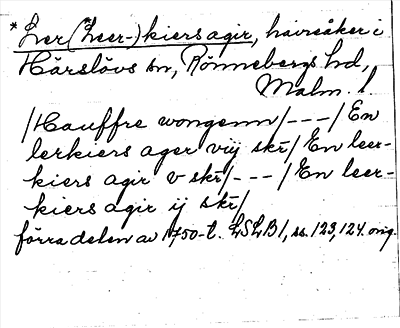 *Ler (Leer-) kiersagir, havreåker i
Härslövs sn, Rönnebergs hd,
Malm. l.
/Hauffre wongenn/---/En
lerkiers ager viij skr/En leer-
kiers agir v skr/---/En leer-
kiers agir ij skr/
förra delen av 1750-t. LSLB1, ss. 123, 124 orig.